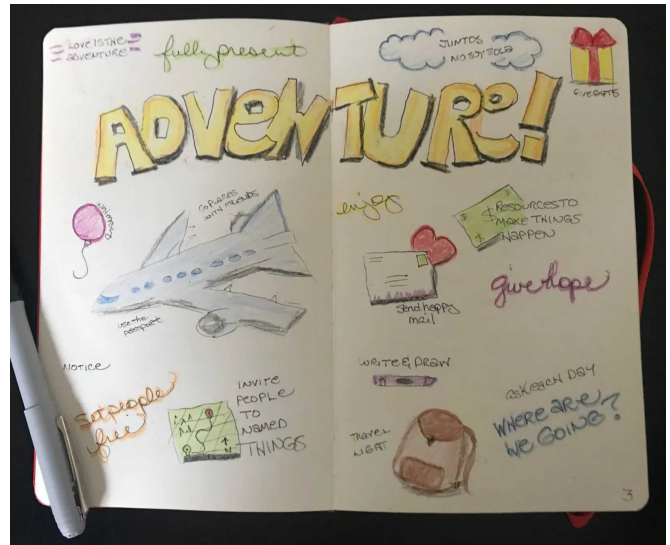 LOVE IS THE
ADVENTURE
fully present
JUNTOS
NO SY SOLA
GIVE GIFTS
ADVENTURE!
GO PLACES
WITH FRIENDS
use the
passport
enjoy
$
$
$
RESOURCES TO
MAKE THINGS
HAPPEN
Send happy
mail
give hope
NOTICE
set people
free
INVITE
PEOPLE
TO
NAMED
THINGS
N
WRITE & DRAW
TRAVEL
LIGHT
ask each DAY
WHERE ARE
WE GOING?
3